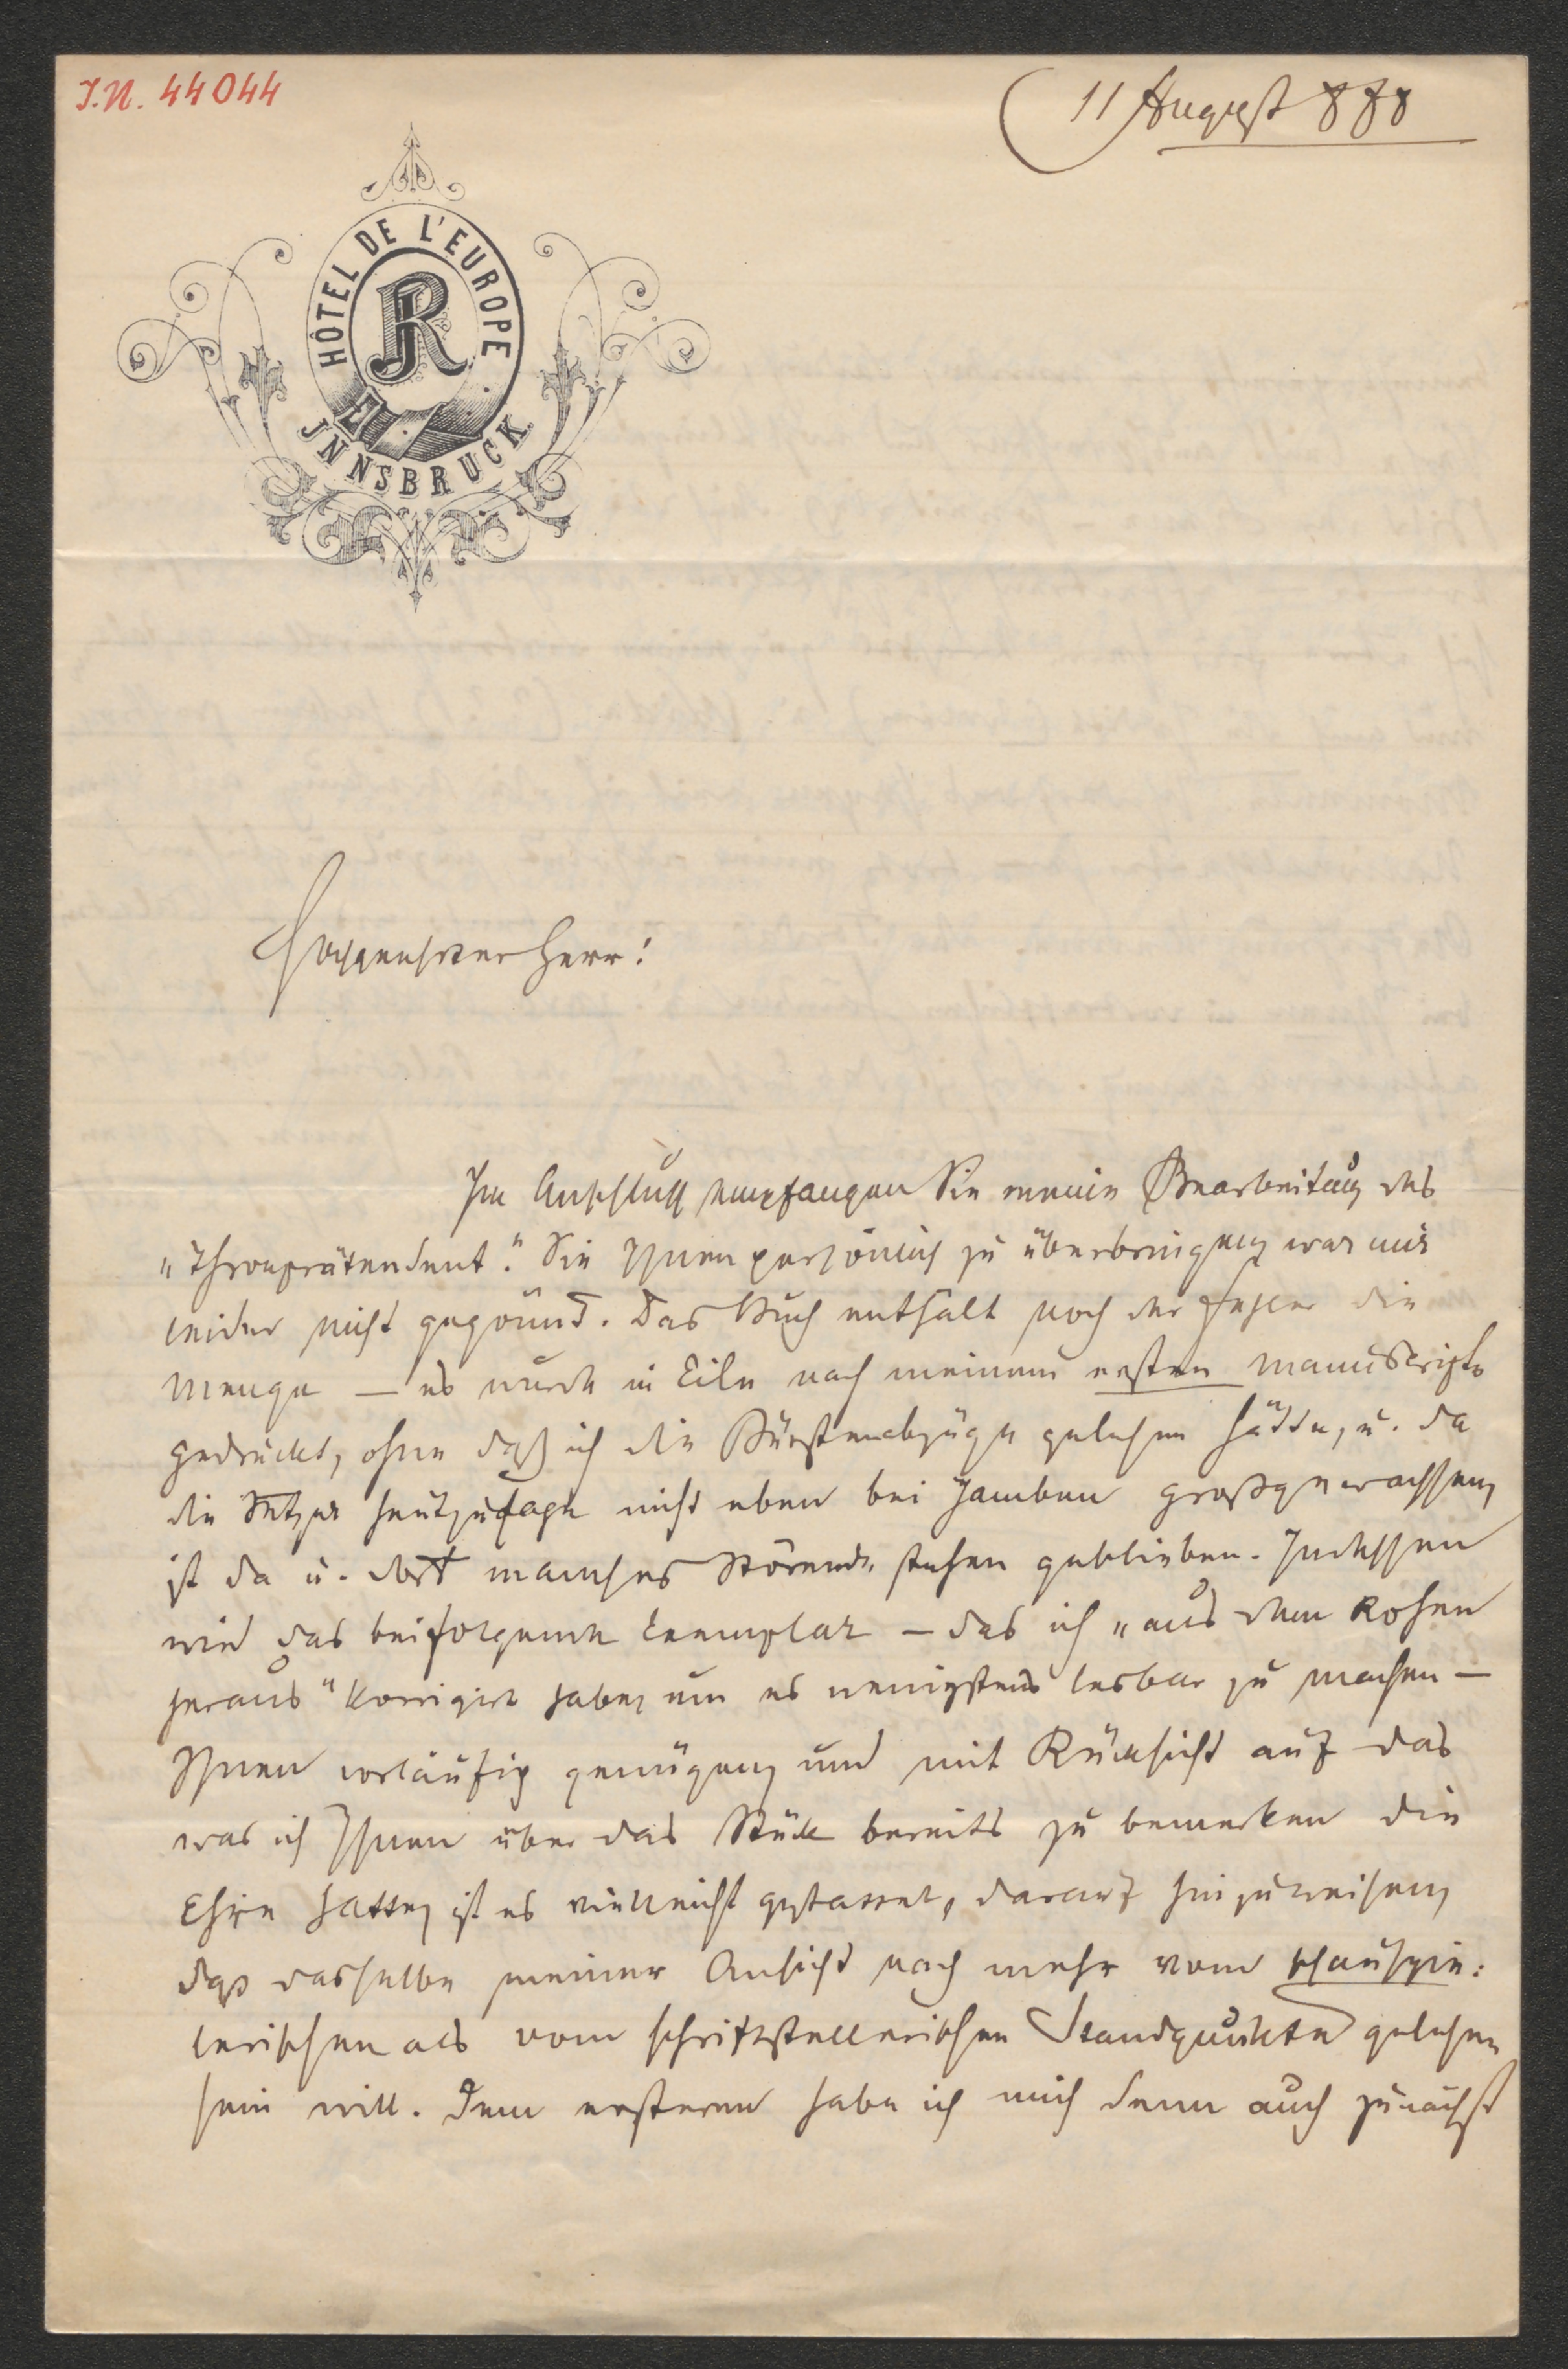 J.N. 44044
11 August 888
HÔTEL DE L'EUROPE
R
INNSBRUCK
Hochgeehrter Herr!
Im Anschluß empfangen Sie meine Bearbeitung des
„Thronprätendent." Sie Ihnen persönlich zu überbringen war mir
leider nicht gegönnt. Das Buch enthält noch der Fehler die
Menge — es wurde in Eile nach meinem ersten Manuskripte
gedruckt, ohne daß ich die Bürstenabzüge gelesen hätte, u. da
die Setzer heutzutage nicht eben bei Jamben großgewachsen,
ist da u. dort manches Störende stehen geblieben. Indessen
wird das beifolgende Exemplar — das ich „aus dem Rohen
heraus" korrigirt habe, um es wenigstens lesbar zu machen —
Ihnen vorläufig genügen, und mit Rücksicht auf das
was ich Ihnen über das Stück bereits zu bemerken die
Ehre hatte, ist es vielleicht gestattet, darauf hinzuweisen,
daß dasselbe meiner Ansicht nach mehr vom schauspie:
lerischen als vom schriftstellerischen Standpunkte gelesen
sein will. Dem ersteren habe ich mich denn auch zunächst